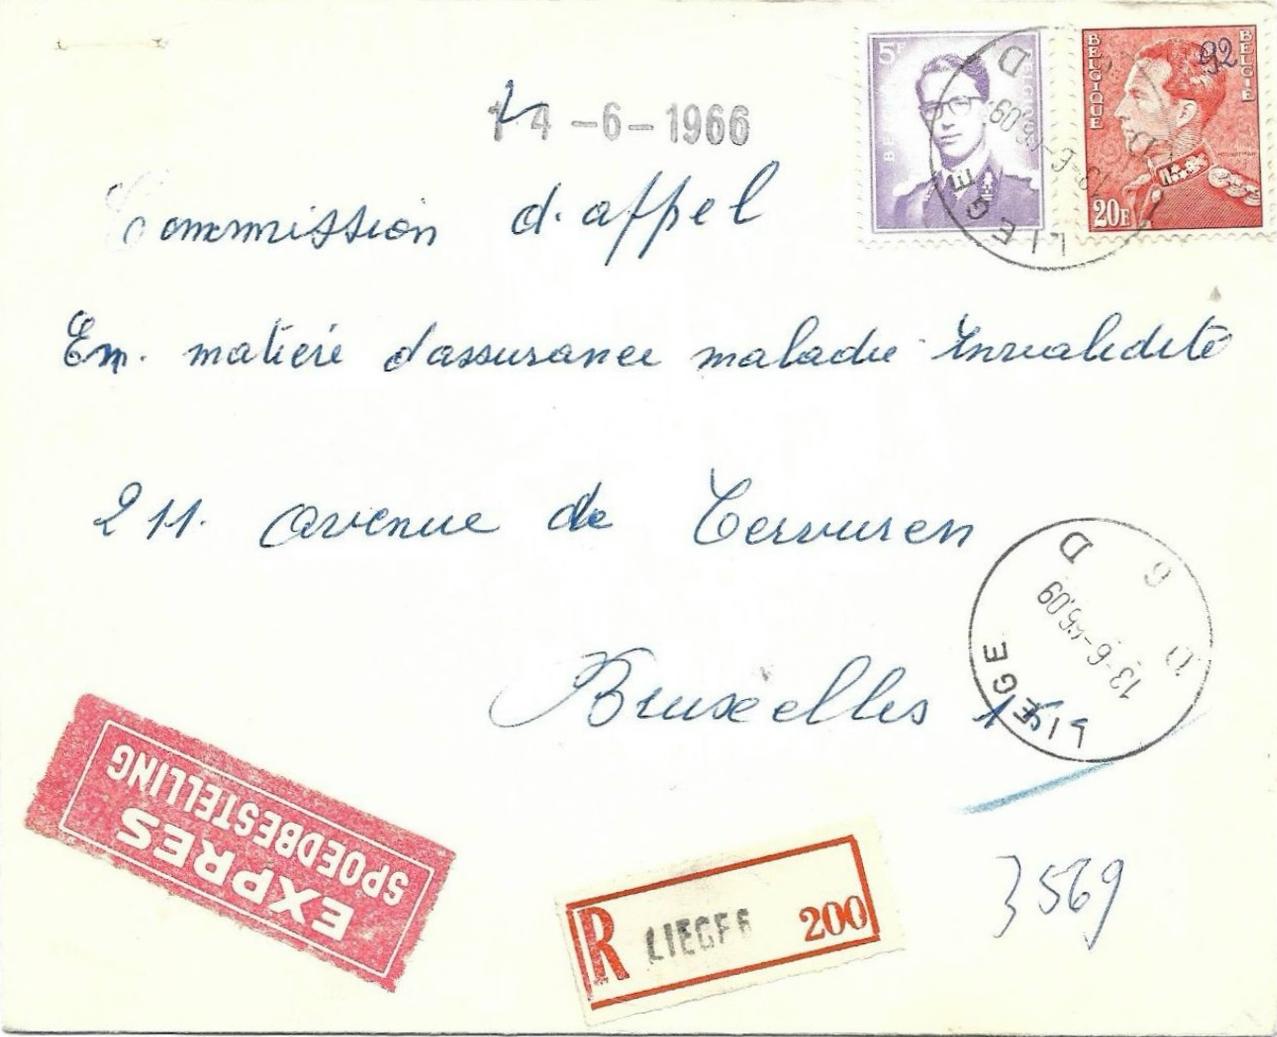 5F
BELGIQUE
BELGIE
92
20F
14-6-1966
D
LIEGE
Commission d'appel
En. matiere d'assurance maladie-Invalidité
211. avenue de Tervuren
Bruxelles 15
D 6 D
13-6-66.09
LIEGE
EXPRES
SPOEDBESTELLING
R LIEGE 6 200
3569